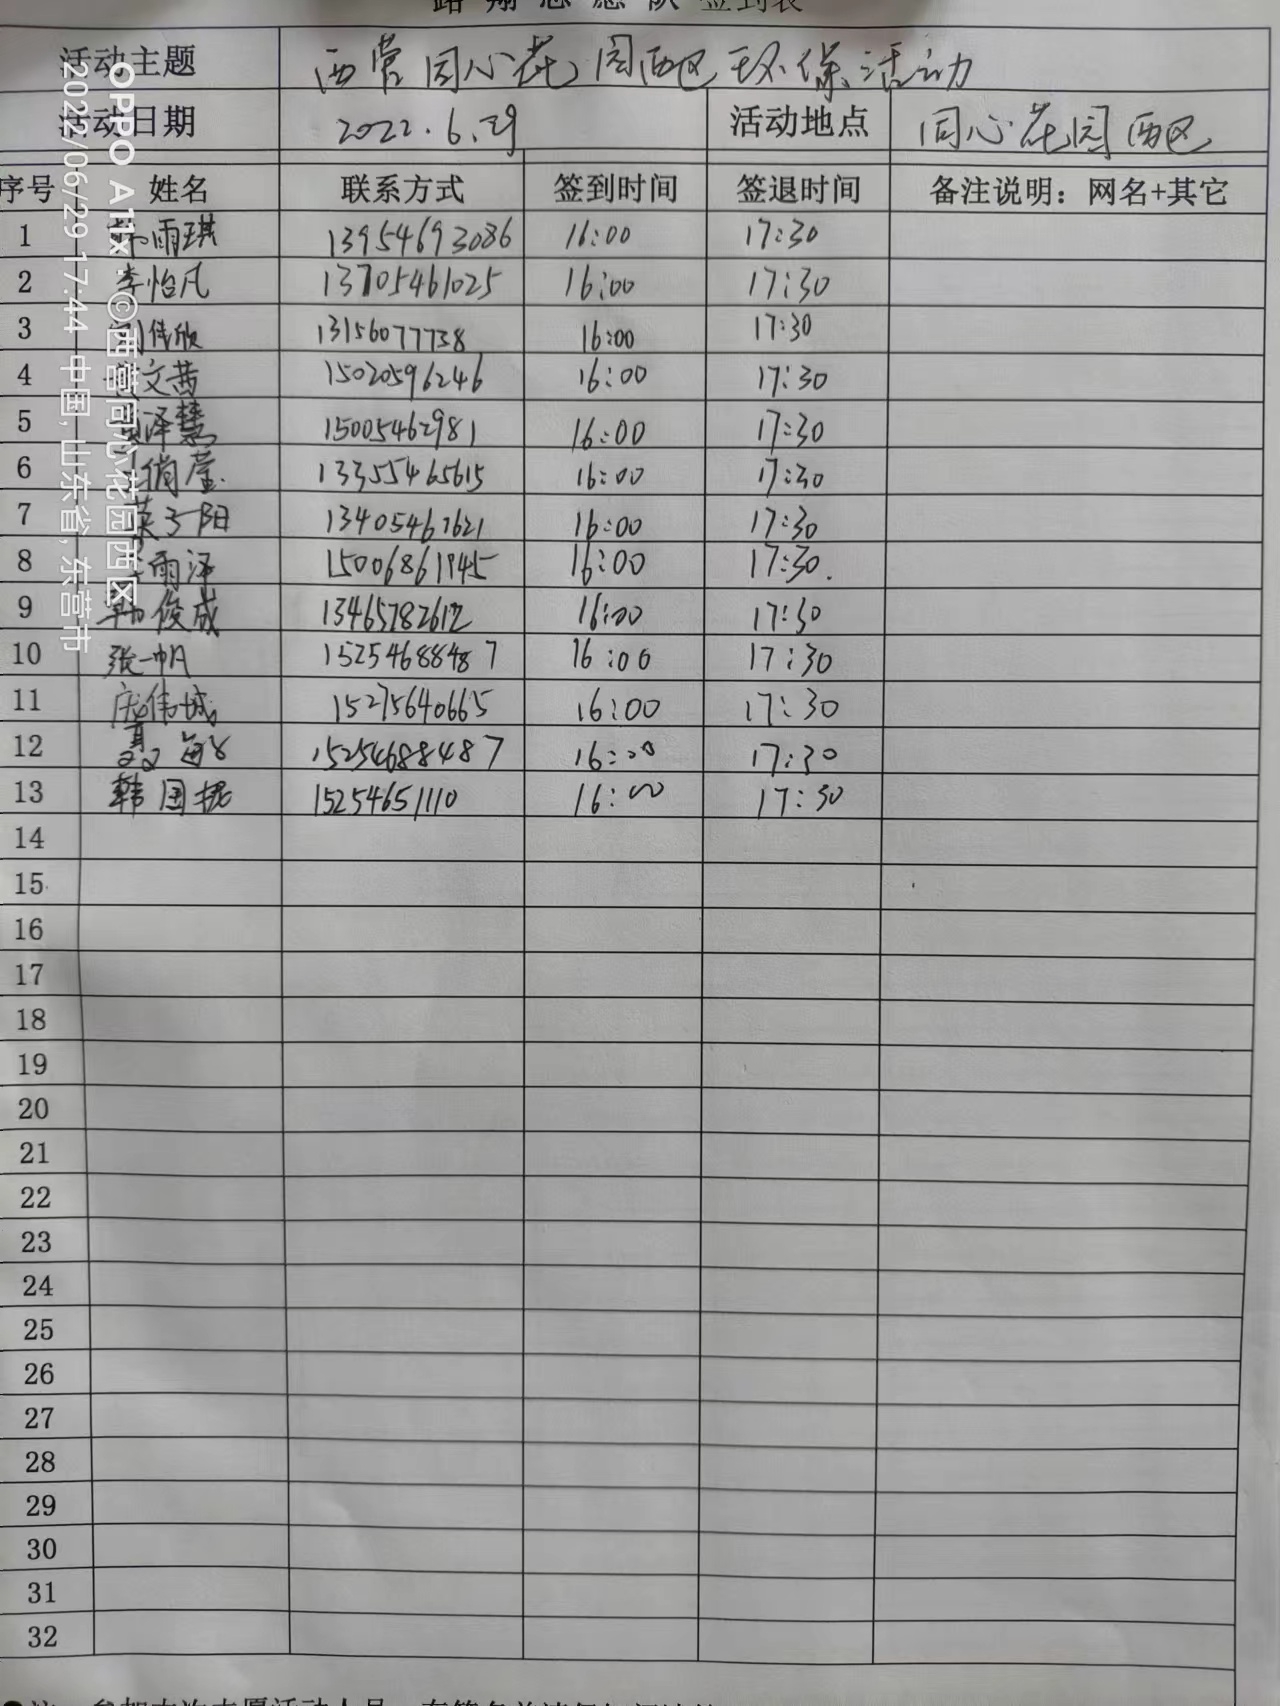 签到表
活动主题 西营同心花园西区环保活动
活动日期 2022.6.29 活动地点 同心花园西区
序号 姓名 联系方式 签到时间 签退时间 备注说明：网名+其它
1 雨琪 13954693086 16:00 17:30
2 李怡凡 13705461025 16:00 17:30
3 刘伟欣 13156077738 16:00 17:30
4 文茜 15020596246 16:00 17:30
5 泽慧 15005462981 16:00 17:30
6 俏莹 13355465615 16:00 17:30
7 子阳 13405467621 16:00 17:30
8 雨泽 15006861945 16:00 17:30.
9 韩俊成 13465782612 16:00 17:30
10 张一帆 15254688487 16:00 17:30
11 庞伟城 15275640665 16:00 17:30
12 15254688487 16:00 17:30
13 韩国振 15254651110 16:00 17:30
14
15
16
17
18
19
20
21
22
23
24
25
26
27
28
29
30
31
32
OPPO A11x · ©西营同心花园西区
2022/06/29 17:44 中国, 山东省, 东营市